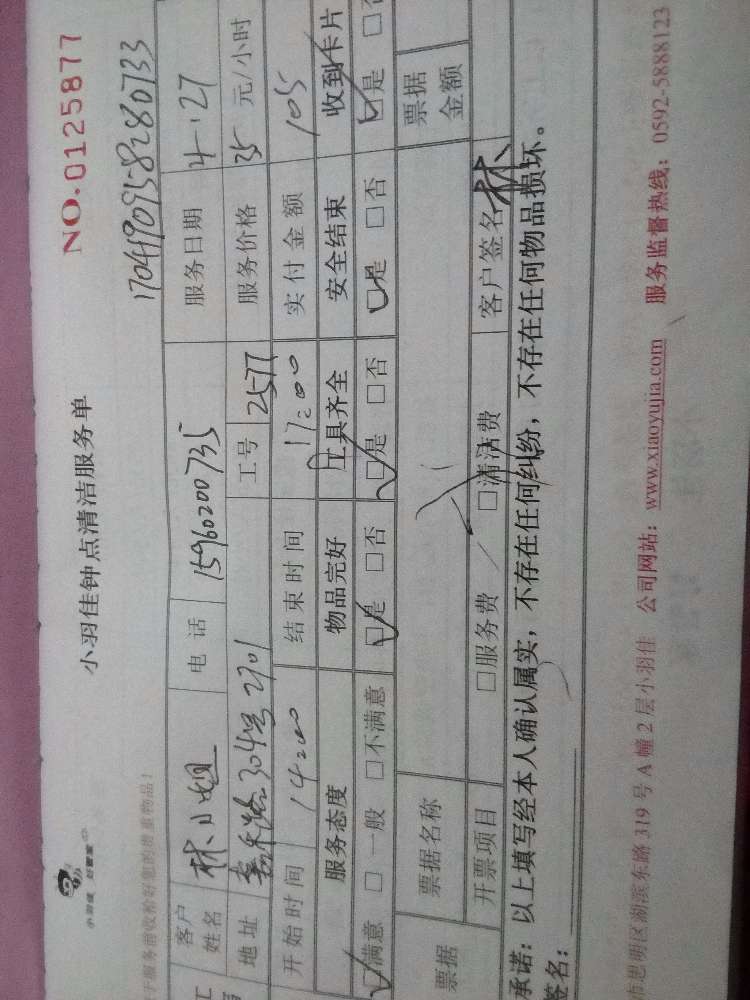 小羽佳 好管家
小羽佳钟点清洁服务单
NO.0125877
于服务前收检好您的贵重物品！
170419095-8280733
客户姓名 林小姐 电话 15960200735 服务日期 4.27
地址 嘉禾路304号2701 工号 2577 服务价格 35 元/小时
开始时间 14:00 结束时间 17:00 实付金额 105
服务态度 物品完好 工具齐全 安全结束 收到卡片
□满意 □一般 □不满意 □是 □否 □是 □否 □是 □否 □是 □否
票据 票据名称 票据金额
开票项目 □服务费 □清洁费 客户签名 林
承诺：以上填写经本人确认属实，不存在任何纠纷，不存在任何物品损坏。
签名：
市思明区湖滨东路319号A幢2层小羽佳 公司网站：www.xiaoyujia.com 服务监督热线：0592-5888123